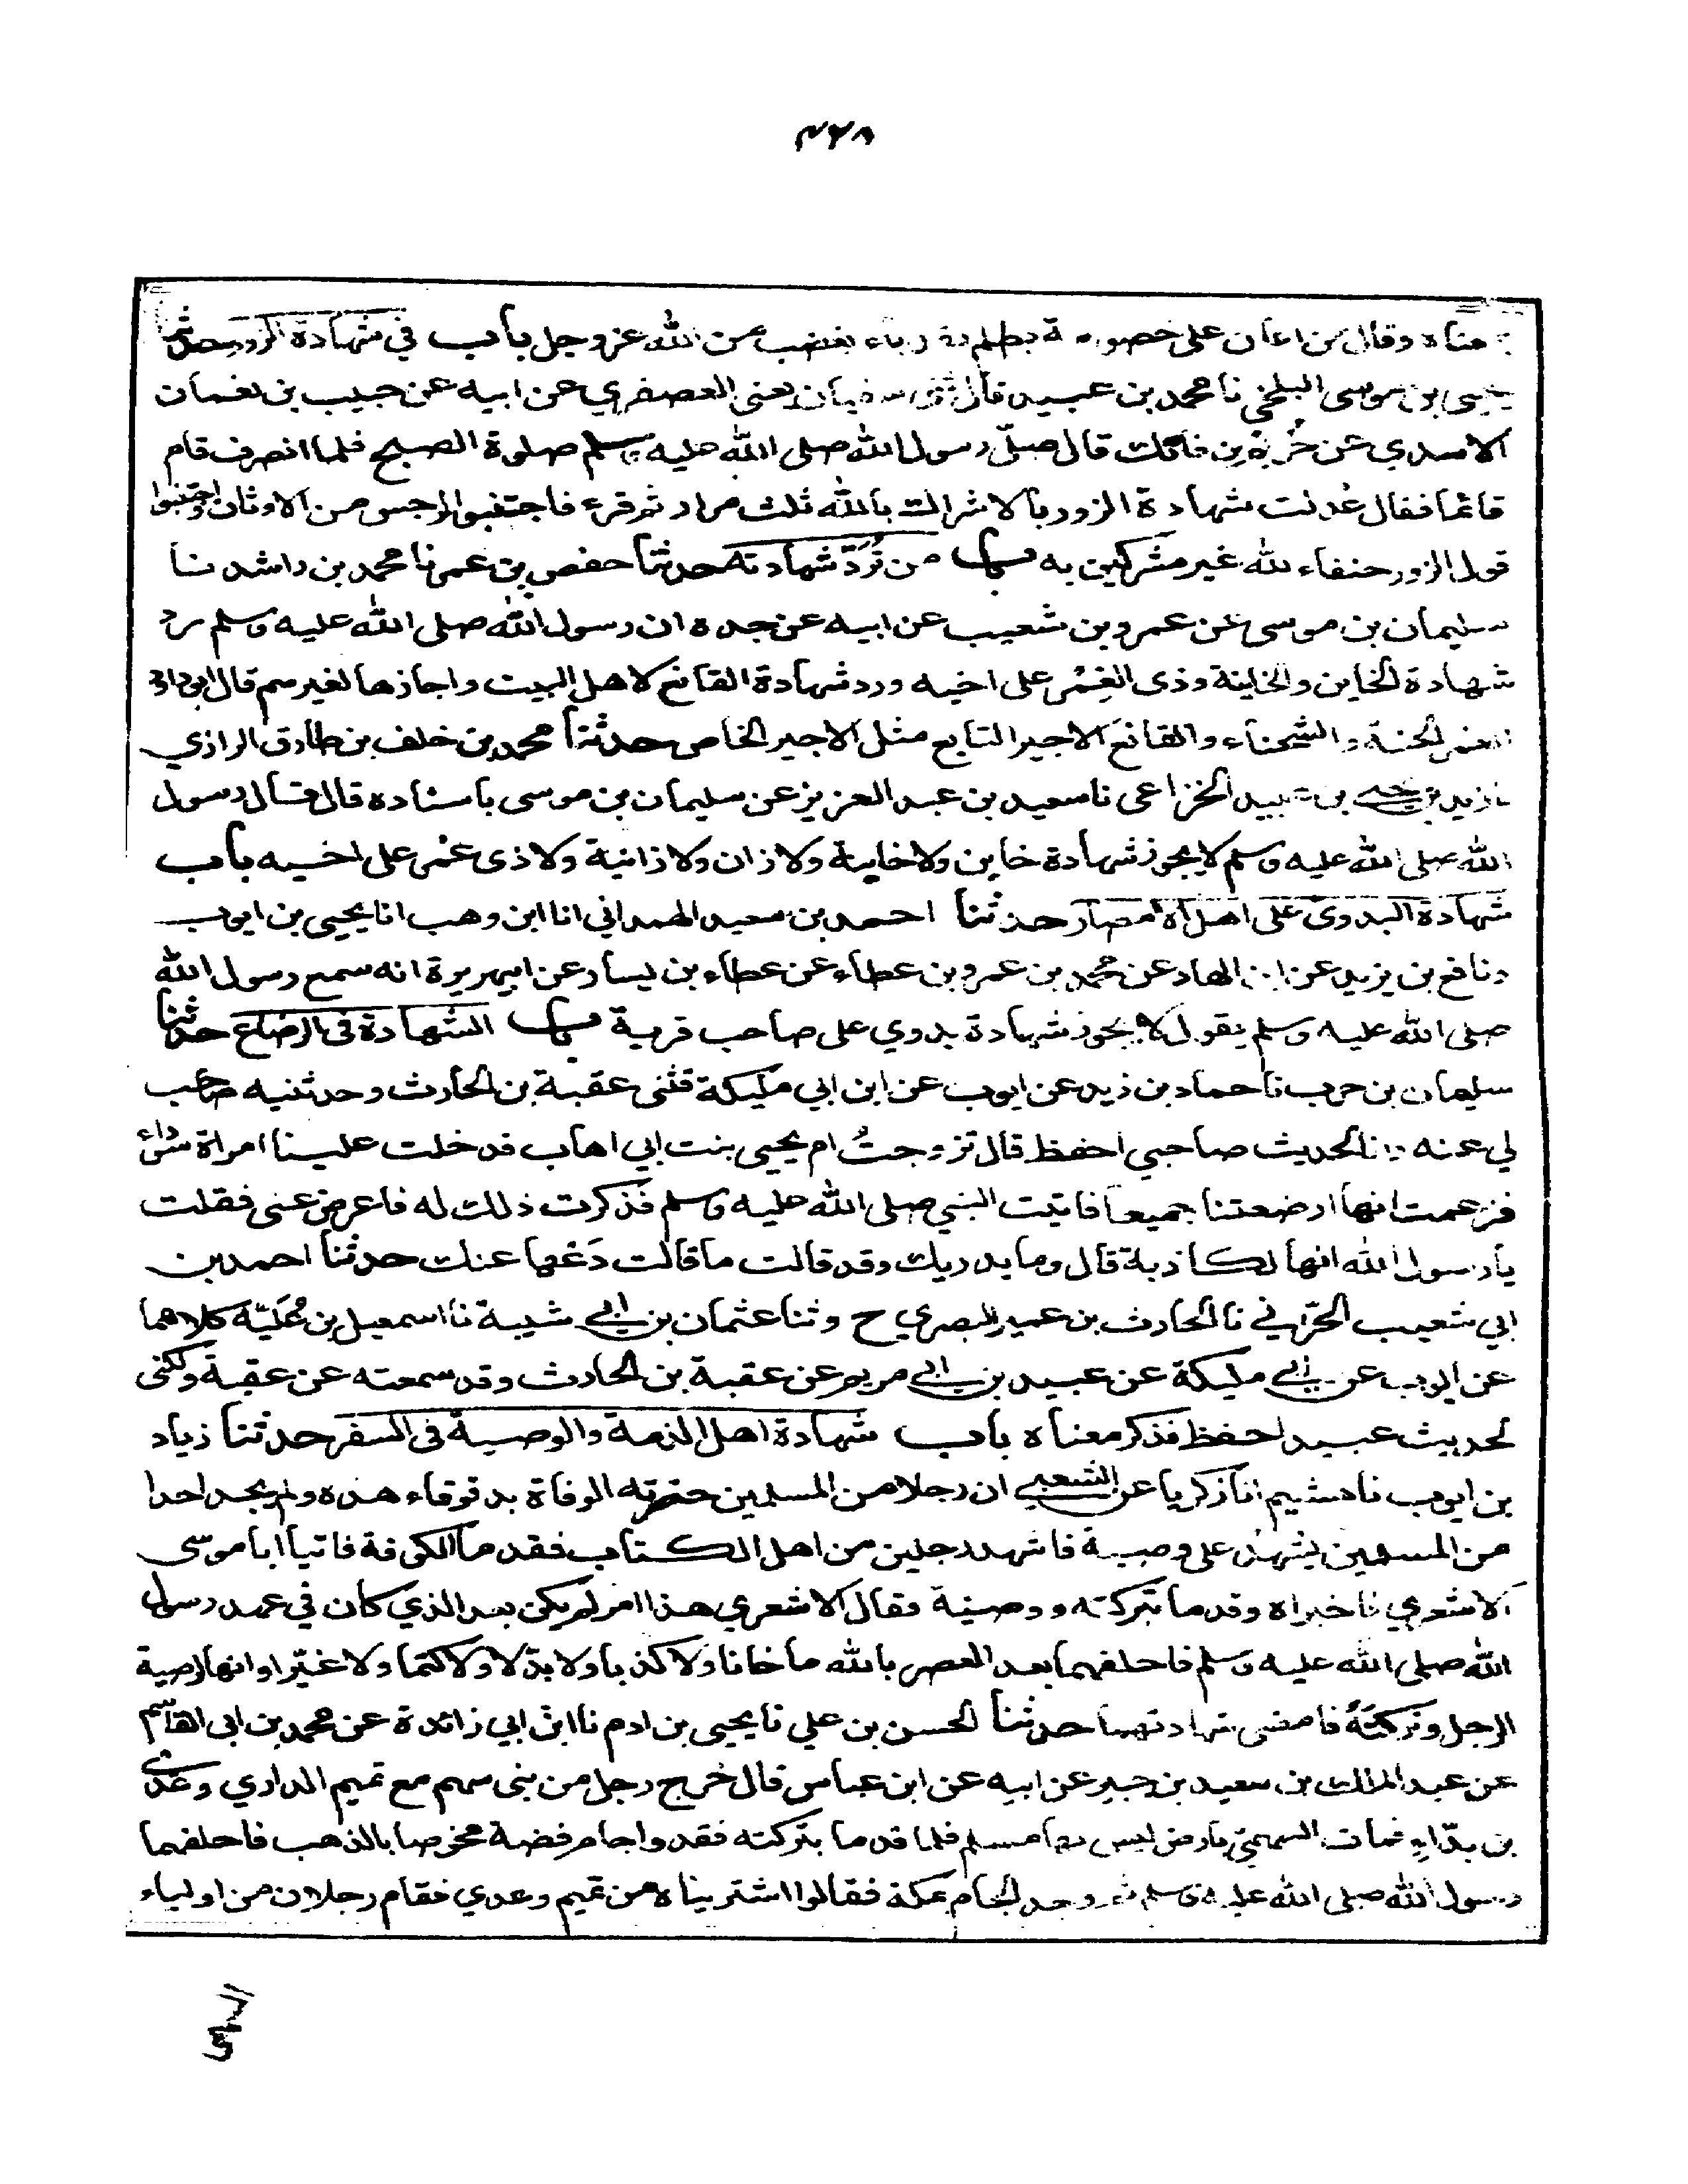 ٤٢٨
معناه وقال من اعان على خصومة بظلم فقد باء بغضب من الله عز وجل باب في شهادة الزور حدثنا
يحيى بن موسى البلخي نا محمد بن عبيد قال ثنى سفيان يعنى العصفري عن ابيه عن حبيب بن نعمان
الاسدي عن خريم بن فاتك قال صلى رسول الله صلى الله عليه وسلم صلوة الصبح فلما انصرف قام
قائما فقال عُدلت شهادة الزور بالاشراك بالله ثلث مرار ثم قرء فاجتنبوا الرجس من الاوثان واجتنبوا
قول الزور حنفاء لله غير مشركين به باب من تُرَدّ شهادته حدثنا حفص بن عمر نا محمد بن راشد نا
سليمان بن موسى عن عمرو بن شعيب عن ابيه عن جده ان رسول الله صلى الله عليه وسلم رد
شهادة الخاين والخاينة وذى الغِمْر على اخيه ورد شهادة القانع لاهل البيت واجازها لغيرهم قال ابو داؤد
الغمر الحنة والشحناء والقانع الاجير التابع مثل الاجير الخاص حدثنا محمد بن خلف بن طارق الرازي
نا زيد بن يحيى بن عبيد الخزاعى نا سعيد بن عبد العزيز عن سليمان بن موسى باسناده قال قال رسول
الله صلى الله عليه وسلم لا يجوز شهادة خاين ولا خاينة ولا زان ولا زانية ولا ذى غمر على اخيه باب
شهادة البدوى على اهل الامصار حدثنا احمد بن سعيد الهمداني انا ابن وهب انا يحيى بن ايوب
ونافع بن يزيد عن ابن الهاد عن محمد بن عمرو بن عطاء عن عطاء بن يسار عن ابيهريرة انه سمع رسول الله
صلى الله عليه وسلم يقول لا يجوز شهادة بدوي على صاحب قرية باب الشهادة فى الرضاع حدثنا
سليمان بن حرب نا حماد بن زيد عن ايوب عن ابن ابي مليكة قثنى عقبة بن الحارث وحدثنيه صاحب
لي عنه وانا لحديث صاحبي احفظ قال تزوجتُ ام يحيى بنت ابي اهاب فدخلت علينا امراة سوداء
فزعمت انها ارضعتنا جميعا فاتيت النبي صلى الله عليه وسلم فذكرت ذلك له فاعرض عنى فقلت
يا رسول الله انها لكاذبة قال وما يدريك وقد قالت ما قالت دَعْها عنك حدثنا احمد بن
ابي شعيب الحرّاني نا الحارث بن عمير البصري ح وثنا عثمان بن ابي شيبة نا اسمعيل بن عُلَيّة كلاهما
عن ايوب عن ابي مليكة عن عبيد بن ابي مريم عن عقبة بن الحارث وقد سمعته عن عقبة ولكنى
لحديث عبيد احفظ فذكر معناه باب شهادة اهل الذمة والوصية فى السفر حدثنا زياد
بن ايوب نا هشيم انا زكريا عن الشعبي ان رجلا من المسلمين حضرته الوفاة بدقوقاء هذه ولم يجد احدا
من المسلمين يشهد على وصية فاشهد رجلين من اهل الكتاب فقدما الكوفة فاتيا ابا موسى
الاشعري فاخبراه وقدما بتركته ووصيته فقال الاشعري هذا امر لم يكن بعد الذي كان في عهد رسول
الله صلى الله عليه وسلم فاحلفهما بعد العصر بالله ما خانا ولا كذبا ولا بدّلا ولا كتما ولا غيّرا وانها لوصية
الرجل وتركتهُ فامضى شهادتهما حدثنا الحسن بن علي نا يحيى بن ادم نا ابن ابي زائدة عن محمد بن ابى القاسم
عن عبد الملك بن سعيد بن جبير عن ابيه عن ابن عباس قال خرج رجل من بنى سهم مع تميم الداري وعدي
بن بدّاء فمات السهمي بارض ليس بها مسلم فلما قدما بتركته فقدوا جام فضة مخوصا بالذهب فاحلفهما
رسول الله صلى الله عليه وسلم ثم وجد الجام بمكة فقالوا اشتريناه من تميم وعدي فقام رجلان من اولياء